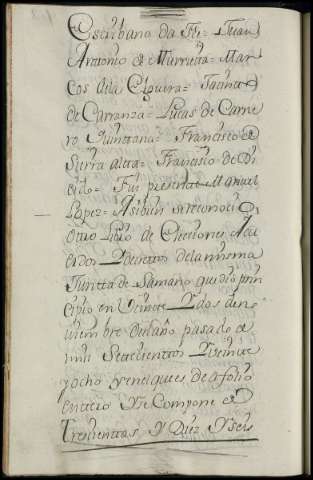 Escribano da Fe= Juan
Antonio de Murrieta= Mar
cos de la Elguera= Jacinto
de Carranza= Lucas de Carne
ro Quintana= Francisco de
Sierra alta= Francisco de Di
cido= Fui presente Manuel
Lopez= Asibien se reconocio
Otro Libro de Elecciones Acu
erdos Y decretos de la misma
Juntta de Samano que dio prin
cipio en Veinte Y dos de no
viembre del año pasado de
mill Setecientos Y Veinte
y ocho y en el que es de a folio
entero Y se Compone de
Trescientas Y Diez Y seis